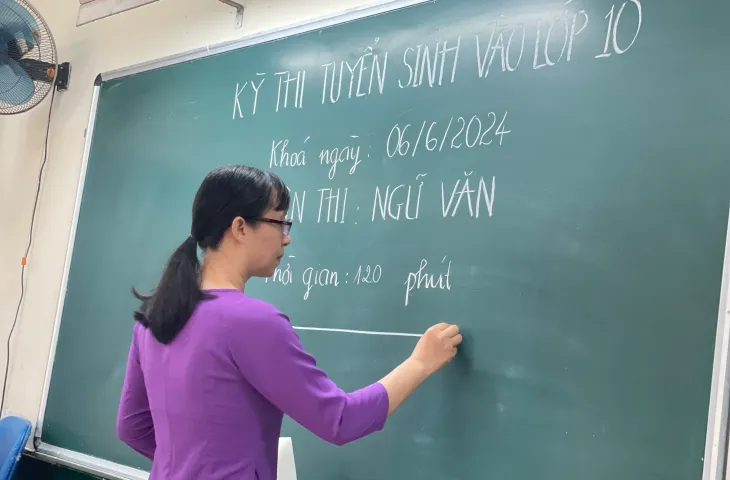 KỲ THI TUYỂN SINH VÀO LỚP 10
Khoá ngày: 06/6/2024
THI: NGỮ VĂN
gian: 120 phút